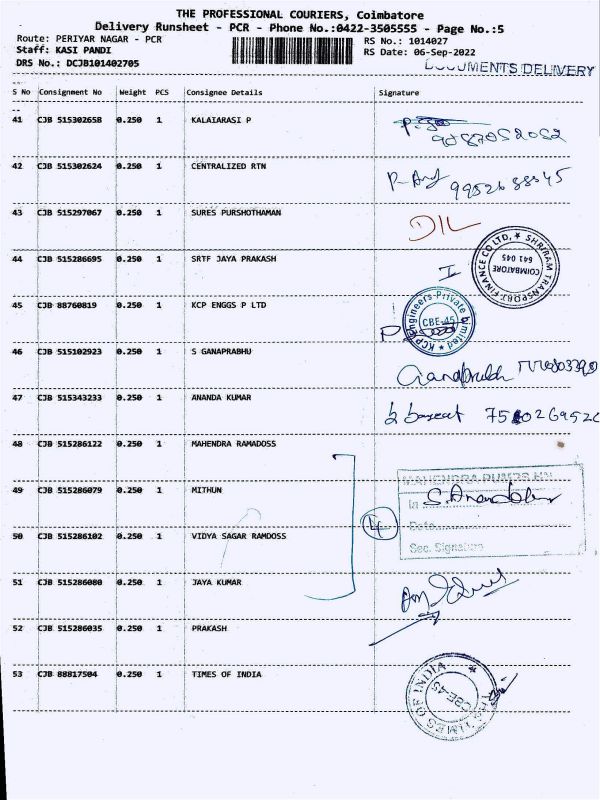 THE PROFESSIONAL COURIERS, Coimbatore
Delivery Runsheet - PCR - Phone No.:0422-3505555 - Page No.:5
Route: PERIYAR NAGAR - PCR
Staff: KASI PANDI
DRS No.: DCJB101402705
RS No.: 1014027
RS Date: 06-Sep-2022
DOCUMENTS DELIVERY
S No Consignment No Weight PCS Consignee Details Signature
41 CJB 515302658 0.250 1 KALAIARASI P
9087052052
42 CJB 515302624 0.250 1 CENTRALIZED RTN
43 CJB 515297067 0.250 1 SURES PURSHOTHAMAN
D/L
44 CJB 515286695 0.250 1 SRTF JAYA PRAKASH
SHRIRAM TRANSPORT FINANCE CO LTD, ★
COIMBATORE
641 045
45 CJB 88760819 0.250 1 KCP ENGGS P LTD
KCP Engineers Private Limited ★
CBE-45
46 CJB 515102923 0.250 1 S GANAPRABHU
47 CJB 515343233 0.250 1 ANANDA KUMAR
48 CJB 515286122 0.250 1 MAHENDRA RAMADOSS
MAHENDRA PUMPS
49 CJB 515286079 0.250 1 MITHUN
In
Date
Sec. Signature
4
50 CJB 515286102 0.250 1 VIDYA SAGAR RAMDOSS
51 CJB 515286080 0.250 1 JAYA KUMAR
52 CJB 515286035 0.250 1 PRAKASH
53 CJB 88817504 0.250 1 TIMES OF INDIA
TIMES OF INDIA ★
CBE-45